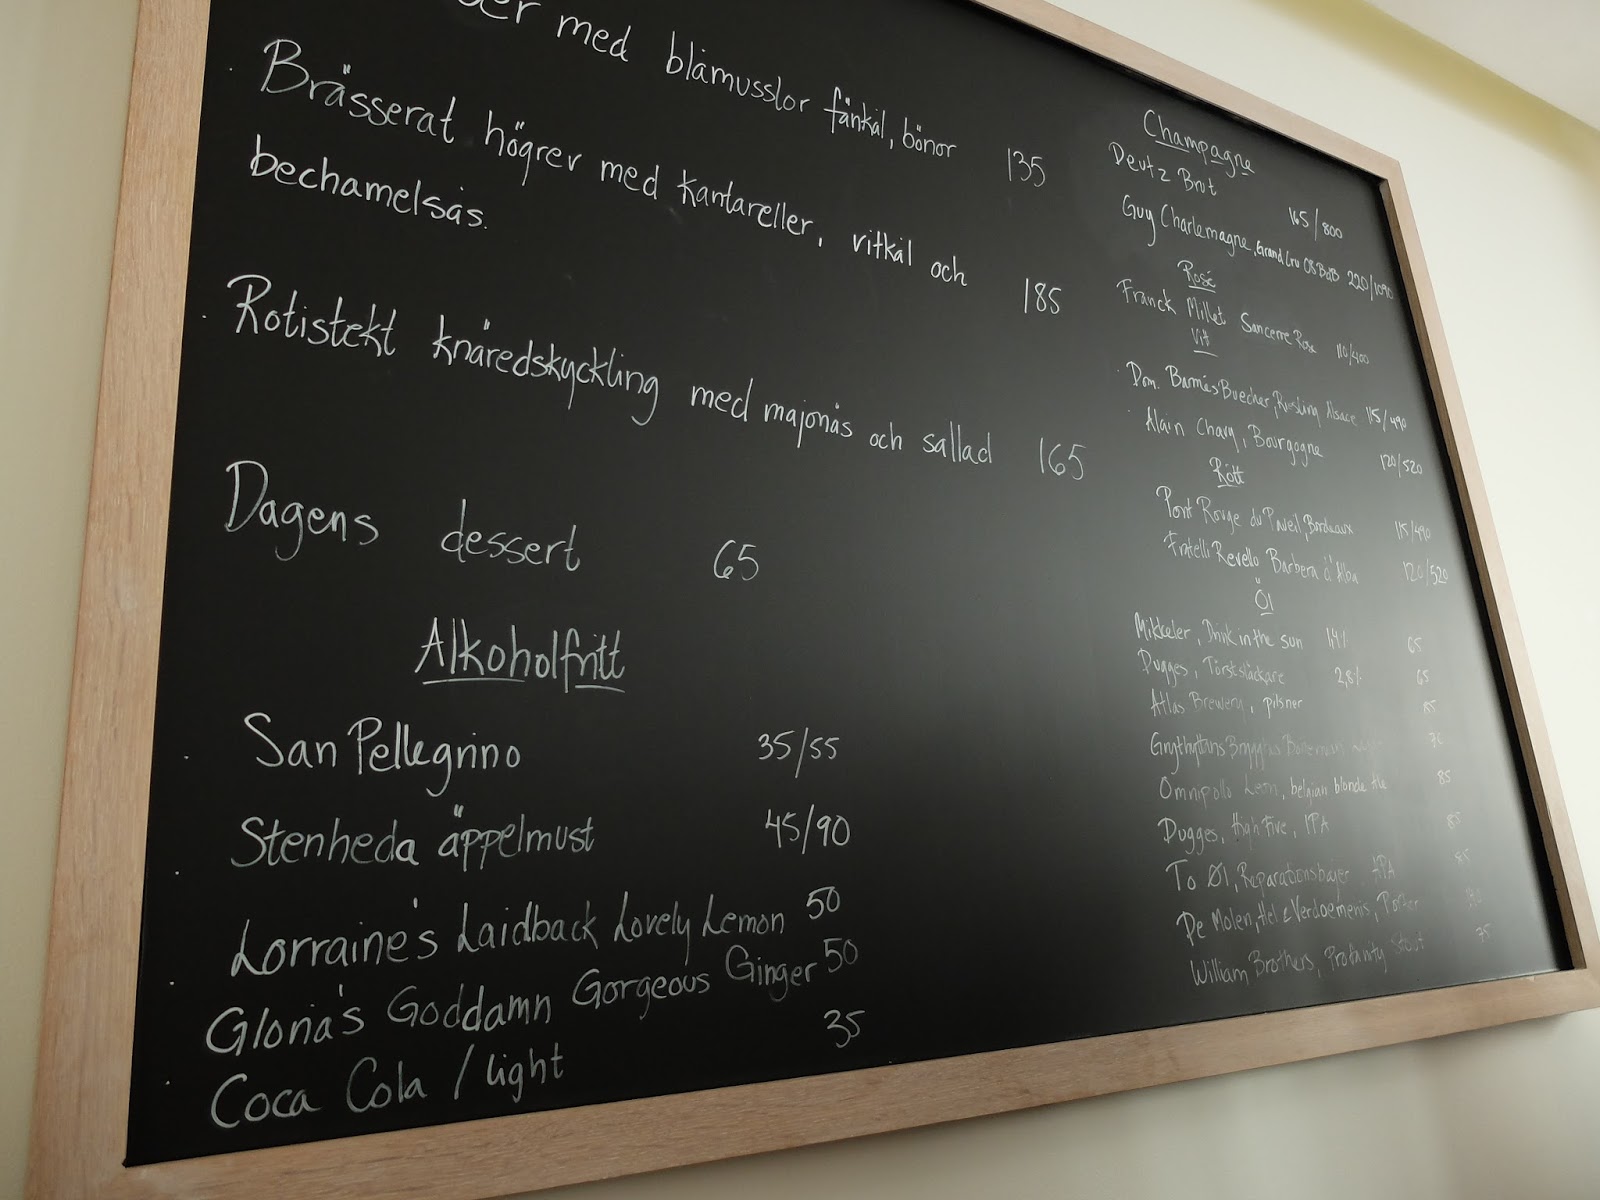 med blåmusslor fänkål, bönor 135
Brässerat högrev med kantareller, vitkål och
bechamelsås. 185
Rotistekt knäredskyckling med majonäs och sallad 165
Dagens dessert 65
Alkoholfritt
San Pellegrino 35/55
Stenheda äppelmust 45/90
Lorraine's Laidback Lovely Lemon 50
Gloria's Goddamn Gorgeous Ginger 50
Coca Cola / light 35
Champagne
Deutz Brut 165/800
Guy Charlemagne, Grand Cru 08 BdB 220/1090
Rosé
Franck Millet Sancerre Rosé 110/400
Vitt
Dom. Barmès Buecher, Riesling Alsace 115/490
Alain Chavy, Bourgogne 120/520
Rött
Pont Rouge du Paveil, Bordeaux 115/490
Fratelli Revello Barbera d'Alba 120/520
Öl
Mikkeler, Drink in the sun 65
Dugges, Törstsläckare 2,8% 65
Atlas Brewery, pilsner 85
Omnipollo Leon, belgian blonde Ale 85
Dugges, High Five, IPA 85
To Øl, Reparationsbajer APA 85
De Molen, Hel & Verdoemenis, Porter
William Brothers, Profanity Stout 75